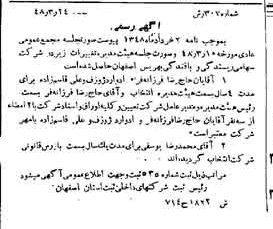 شماره ۳۰۷/ش ۴۸ر۳ر۲۴
آگهی رسمی
بموجب نامه ۲ خردادماه ۱۳۴۸ پیوست صورتجلسه مجمع عمومی
عادی مورخه ۴۸ر۳ر۱ وصورت جلسه هیئت مدیره تغییرات زیر در شرکت
سهامی ریسندگی و بافندگی بهریس اصفهان حاصل شده است
۱ آقایان حاج رضا فرزانه فر ادوارد ژوزف وعلی قاسم زاده برای
مدت ۲ سال سمت هیئت مدیره انتخاب وآقای حاج رضا فرزانه فر
رئیس هیئت مدیره ومدیرعامل شرکت تعیین وکلیه اوراق واسناد شرکت با ۲ امضاء
از سه نفر آقایان حاج رضا فرزانه فر و ادوارد ژوزف و علی قاسم زاده بامهر
شرکت معتبر است
۲ آقای محمدرضا یوسفی برای مدت یکسال بسمت بازرس قانونی
شرکت انتخاب گردیده اند
مراتب ذیل ثبت شماره ۵۳۵ ثبت وجهت اطلاع عموم آگهی میشود
رئیس ثبت شرکتهای داخلی ثبت استان اصفهان
ش ۱۸۲۲ ح ۷۱۴